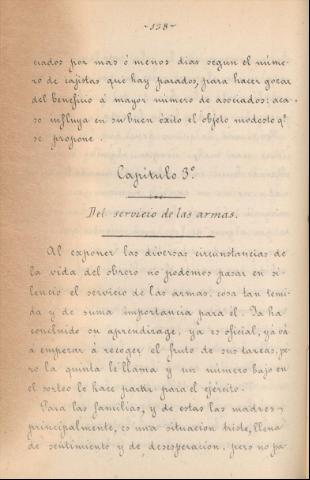 -158-
ciados por mas ó menos dias segun el núme-
ro de cajistas que hay parados, para hacer gozar
del beneficio á mayor número de asociados: aca-
so influya en su buen éxito el objeto modesto q.e
se propone.
Capítulo 3.º
Del servicio de las armas.
Al exponer las diversas circunstancias de
la vida del obrero no podemos pasar en si-
lencio el servicio de las armas, cosa tan temi-
da y de suma importancia para él. Ya ha
concluido su aprendizage, ya es oficial, ya vá
á empezar á recoger el fruto de sus tareas, pe-
ro la quinta le llama y un número bajo en
el sorteo le hace partir para el ejército.
Para las familias, y de estas las madres
principalmente, es una situacion triste, llena
de sentimiento y de desesperacion, pero no pa-